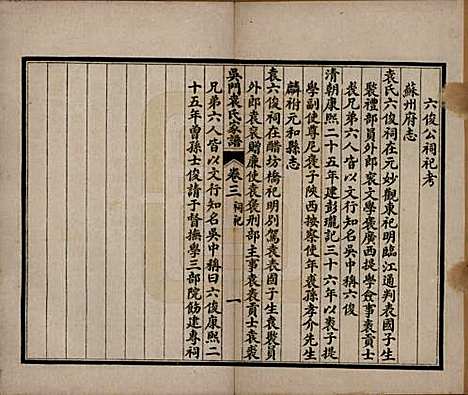 六俊公祠祀考
蘇州府志
袁氏六俊祠在元妙觀東祀明臨江通判袁國子生
裝禮部員外郎袠文學褧廣西提學僉事袁
袠兄弟六人皆以文行知名吳中稱六俊
清朝康熙二十五年建彭瓏記三十六年以袠子提
學副使尊尼褒子陝西按察使年袠孫孝介先生
麟祔元和縣志
袁六俊祠在醋坊橋祀明別駕袁袠國子生袁員
外郎袁袠贈康使袁褒刑部主事袁袠貢士袁裘
兄弟六人皆以文行知名吳中稱曰六俊康熙二
十五年曾孫士俊請于督撫學三部院飭建專祠
吳門袁氏家譜
卷三 祠祀
一